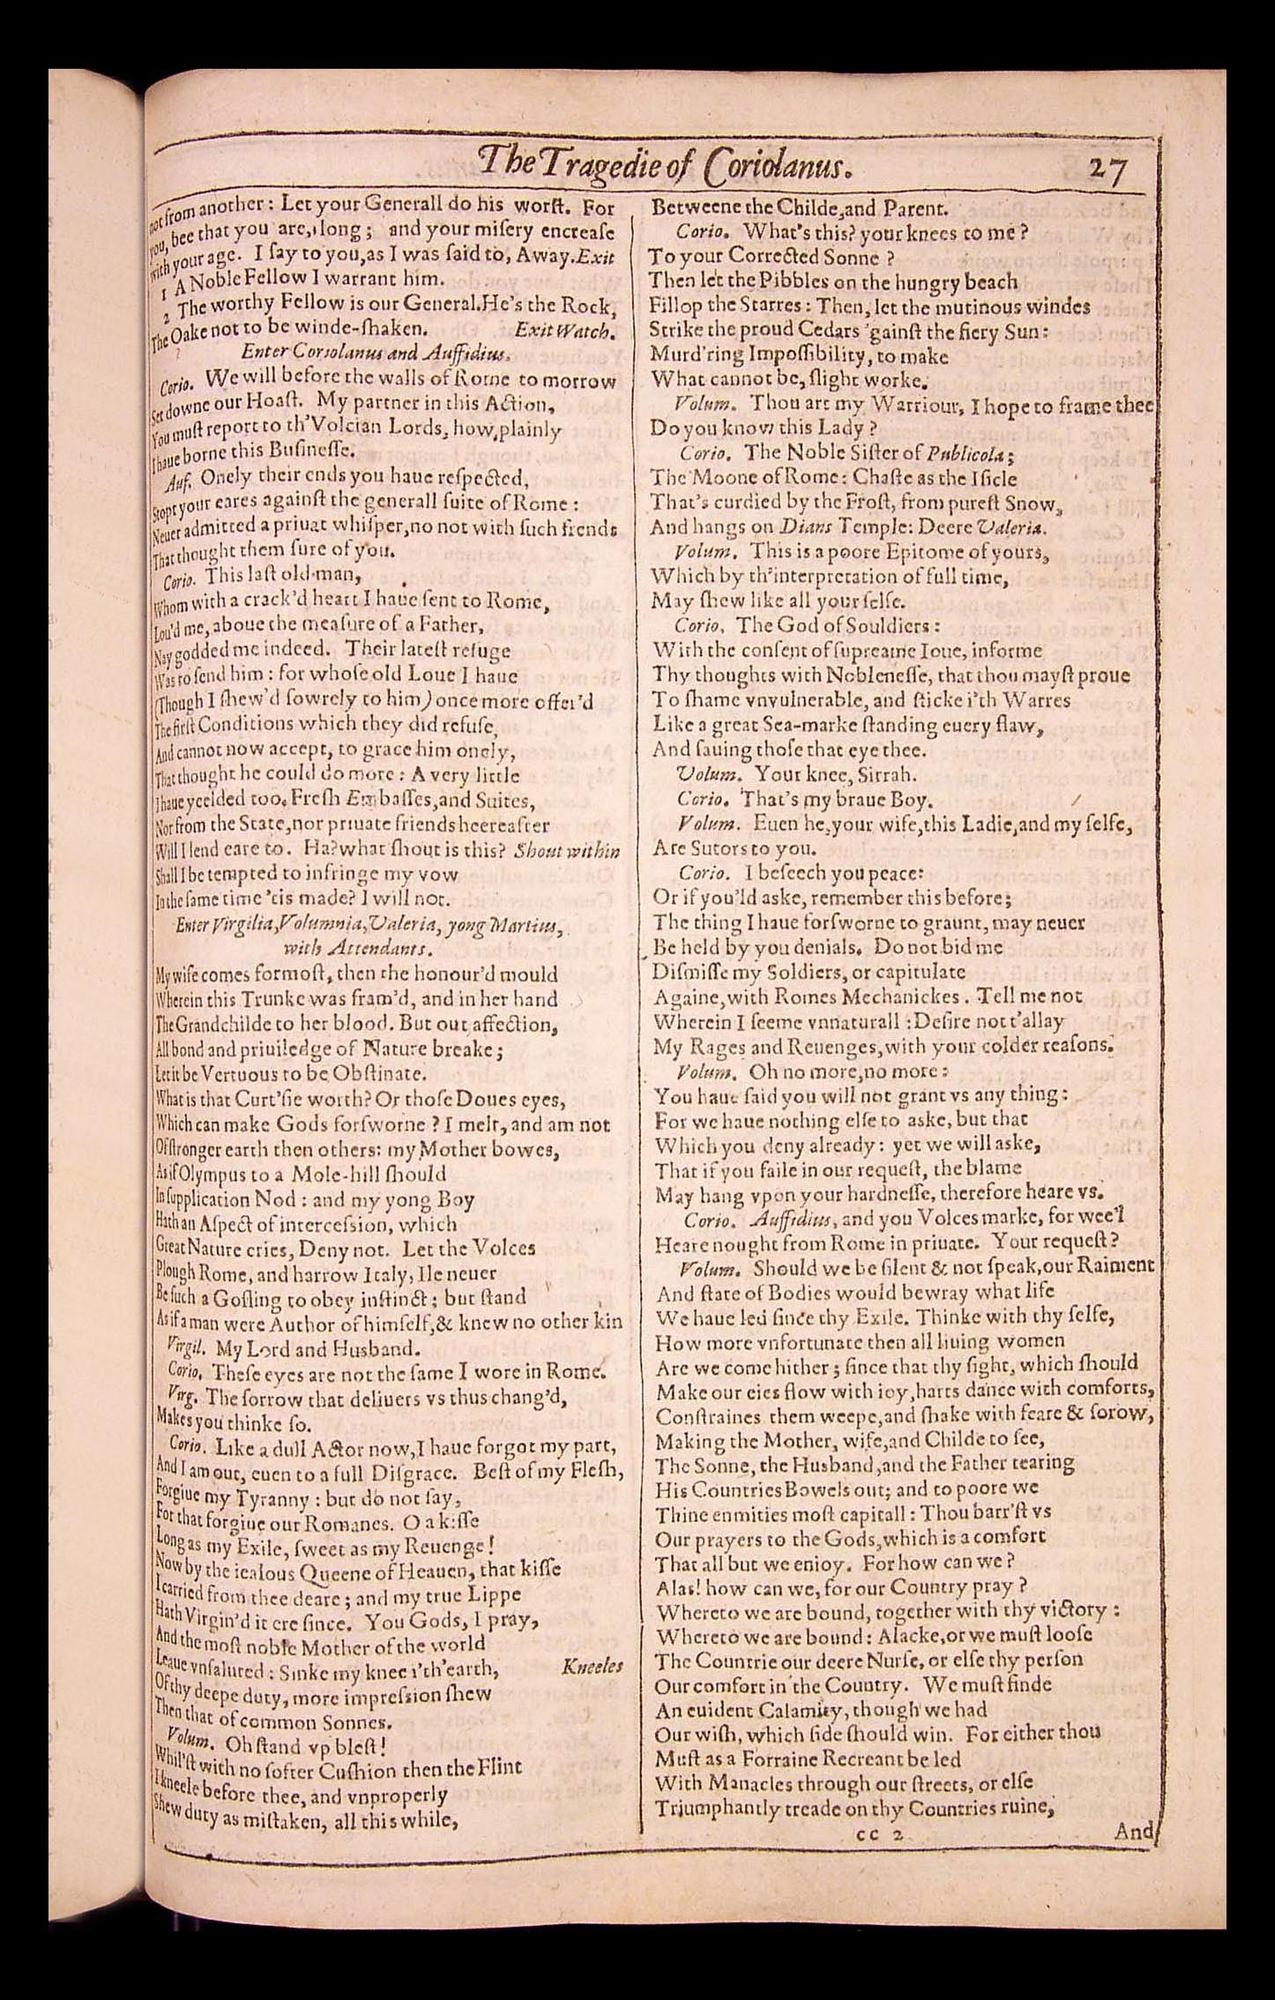 The Tragedie of Coriolanus. 27
not from another: Let your Generall do his worſt. For
you, bee that you are, long; and your miſery encreaſe
with your age. I ſay to you, as I was ſaid to, Away. Exit
1 A Noble Fellow I warrant him.
2 The worthy Fellow is our General. He's the Rock,
The Oake not to be winde-ſhaken. Exit Watch.
Enter Coriolanus and Auffidius.
Corio. We will before the walls of Rome to morrow
Set downe our Hoaſt. My partner in this Action,
You muſt report to th'Volcian Lords, how plainly
I haue borne this Buſineſſe.
Auf. Onely their ends you haue reſpected,
Stopt your eares againſt the generall ſuite of Rome:
Neuer admitted a priuat whiſper, no not with ſuch frends
That thought them ſure of you.
Corio. This laſt old man,
Whom with a crack'd heart I haue ſent to Rome,
Lou'd me, aboue the meaſure of a Father,
Nay godded me indeed. Their lateſt refuge
Was to ſend him: for whoſe old Loue I haue
(Though I ſhew'd ſowrely to him) once more offer'd
The firſt Conditions which they did refuſe,
And cannot now accept, to grace him onely,
That thought he could do more: A very little
I haue yeelded too. Freſh Embaſſes, and Suites,
Nor from the State, nor priuate friends heereafter
Will I lend eare to. Ha? what ſhout is this? Shout within
Shall I be tempted to infringe my vow
In the ſame time 'tis made? I will not.
Enter Virgilia, Volumnia, Valeria, yong Martius,
with Attendants.
My wife comes formoſt, then the honour'd mould
Wherein this Trunke was fram'd, and in her hand
The Grandchilde to her blood. But out affection,
All bond and priuiledge of Nature breake;
Let it be Vertuous to be Obſtinate.
What is that Curt'ſie worth? Or thoſe Doues eyes,
Which can make Gods forſworne? I melt, and am not
Of ſtronger earth then others: my Mother bowes,
As if Olympus to a Mole-hill ſhould
In ſupplication Nod: and my yong Boy
Hath an Aſpect of interceſsion, which
Great Nature cries, Deny not. Let the Volces
Plough Rome, and harrow Italy, Ile neuer
Be ſuch a Goſling to obey inſtinct; but ſtand
As if a man were Author of himſelf, & knew no other kin
Virgil. My Lord and Husband.
Corio. Theſe eyes are not the ſame I wore in Rome.
Virg. The ſorrow that deliuers vs thus chang'd,
Makes you thinke ſo.
Corio. Like a dull Actor now, I haue forgot my part,
And I am out, euen to a full Diſgrace. Beſt of my Fleſh,
Forgiue my Tyranny: but do not ſay,
For that forgiue our Romanes. O a kiſſe
Long as my Exile, ſweet as my Reuenge!
Now by the iealous Queene of Heauen, that kiſſe
I carried from thee deare; and my true Lippe
Hath Virgin'd it ere ſince. You Gods, I pray,
And the moſt noble Mother of the world
Leaue vnſaluted: Sinke my knee i'th'earth, Kneeles
Of thy deepe duty, more impreſsion ſhew
Then that of common Sonnes.
Volum. Oh ſtand vp bleſt!
Whil'ſt with no ſofter Cuſhion then the Flint
I kneele before thee, and vnproperly
Shew duty as miſtaken, all this while,
Betweene the Childe, and Parent.
Corio. What's this? your knees to me?
To your Corrected Sonne?
Then let the Pibbles on the hungry beach
Fillop the Starres: Then, let the mutinous windes
Strike the proud Cedars 'gainſt the fiery Sun:
Murd'ring Impoſſibility, to make
What cannot be, ſlight worke.
Volum. Thou art my Warriour, I hope to frame thee
Do you know this Lady?
Corio. The Noble Siſter of Publicola;
The Moone of Rome: Chaſte as the Iſicle
That's curdied by the Froſt, from pureſt Snow,
And hangs on Dians Temple: Deere Valeria.
Volum. This is a poore Epitome of yours,
Which by th'interpretation of full time,
May ſhew like all your ſelfe.
Corio. The God of Souldiers:
With the conſent of ſupreame Ioue, informe
Thy thoughts with Nobleneſſe, that thou mayſt proue
To ſhame vnvulnerable, and ſticke i'th Warres
Like a great Sea-marke ſtanding euery flaw,
And ſauing thoſe that eye thee.
Volum. Your knee, Sirrah.
Corio. That's my braue Boy.
Volum. Euen he, your wife, this Ladie, and my ſelfe,
Are Sutors to you.
Corio. I beſeech you peace:
Or if you'ld aske, remember this before;
The thing I haue forſworne to graunt, may neuer
Be held by you denials. Do not bid me
Diſmiſſe my Soldiers, or capitulate
Againe, with Romes Mechanickes. Tell me not
Wherein I ſeeme vnnaturall: Deſire not t'allay
My Rages and Reuenges, with your colder reaſons.
Volum. Oh no more, no more:
You haue ſaid you will not grant vs any thing:
For we haue nothing elſe to aske, but that
Which you deny already: yet we will aske,
That if you faile in our requeſt, the blame
May hang vpon your hardneſſe, therefore heare vs.
Corio. Auffidius, and you Volces marke, for wee'l
Heare nought from Rome in priuate. Your requeſt?
Volum. Should we be ſilent & not ſpeak, our Raiment
And ſtate of Bodies would bewray what life
We haue led ſince thy Exile. Thinke with thy ſelfe,
How more vnfortunate then all liuing women
Are we come hither; ſince that thy ſight, which ſhould
Make our eies flow with ioy, harts dance with comforts,
Conſtraines them weepe, and ſhake with feare & ſorow,
Making the Mother, wife, and Childe to ſee,
The Sonne, the Husband, and the Father tearing
His Countries Bowels out; and to poore we
Thine enmities moſt capitall: Thou barr'ſt vs
Our prayers to the Gods, which is a comfort
That all but we enioy. For how can we?
Alas! how can we, for our Country pray?
Whereto we are bound, together with thy victory:
Whereto we are bound: Alacke, or we muſt looſe
The Countrie our deere Nurſe, or elſe thy perſon
Our comfort in the Country. We muſt finde
An euident Calamity, though we had
Our wiſh, which ſide ſhould win. For either thou
Muſt as a Forraine Recreant be led
With Manacles through our ſtreets, or elſe
Triumphantly treade on thy Countries ruine,
cc 2 And